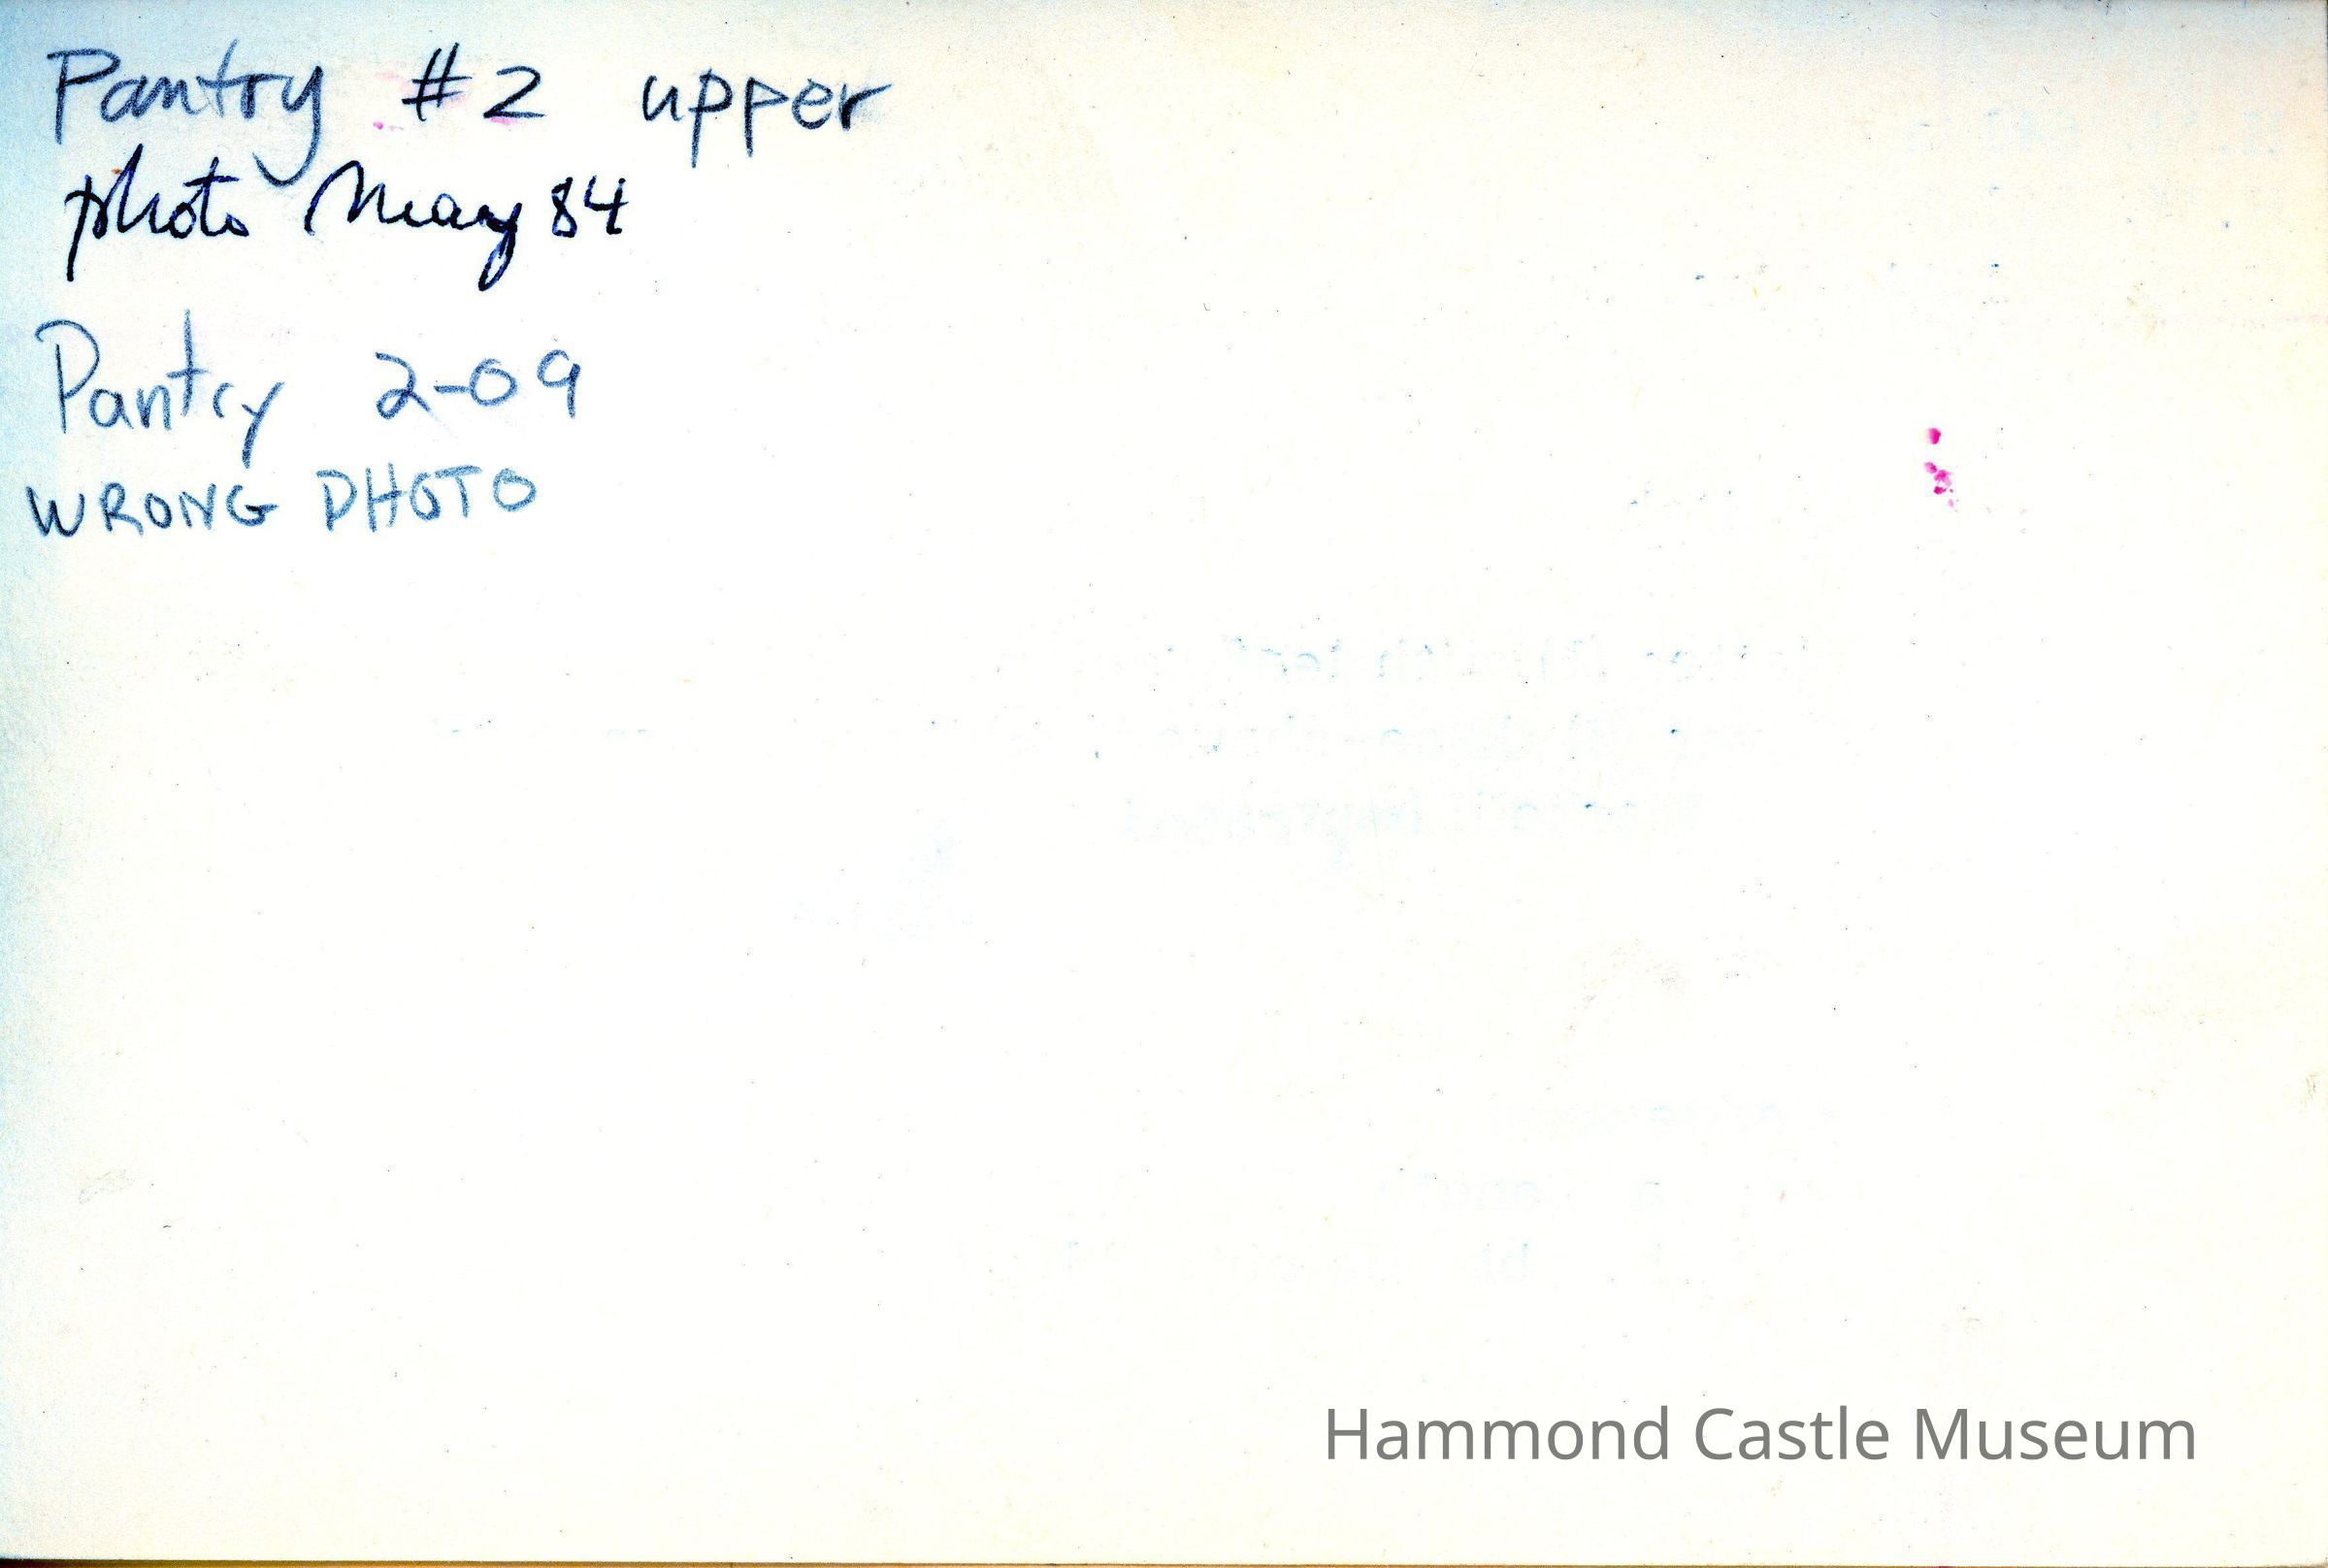 Pantry #2 upper
photo May 84
Pantry 2-09
WRONG PHOTO
Hammond Castle Museum